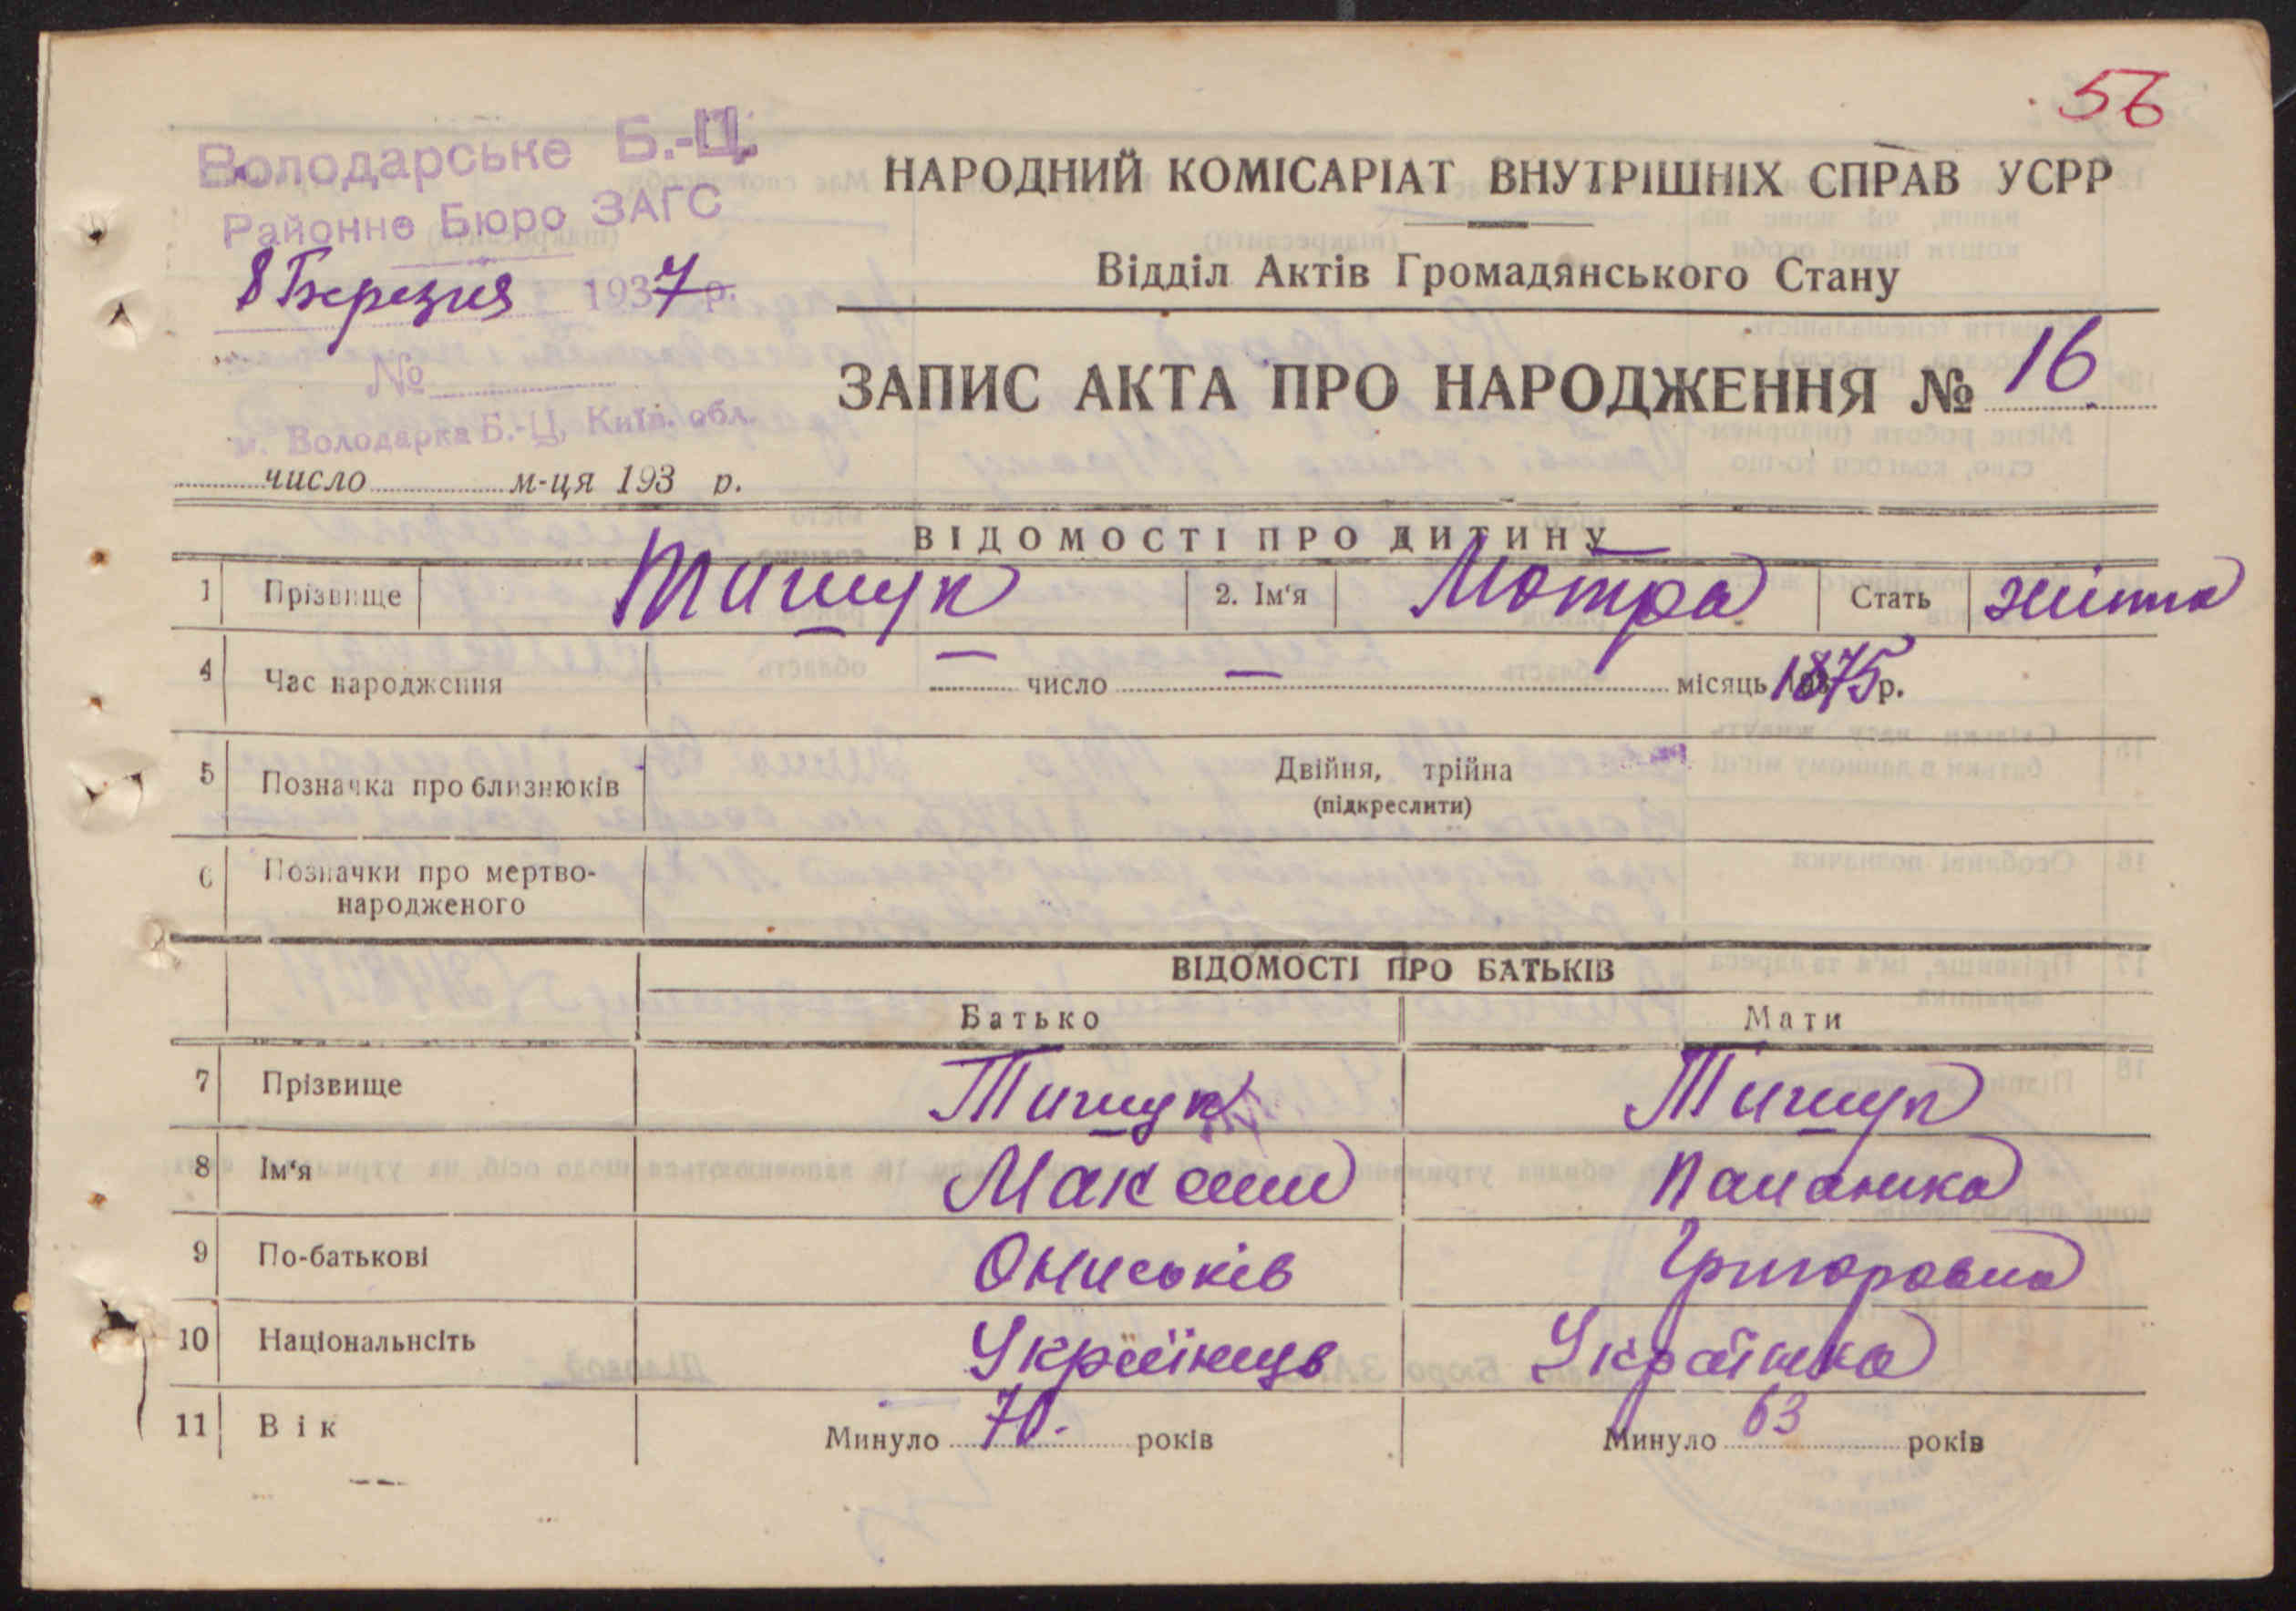 56
Володарське Б.-Ц.
Районне Бюро ЗАГС
8 Березня 1937 р.
№
м. Володарка Б.-Ц, Київ. обл.
число м-ця 193 р.
НАРОДНИЙ КОМІСАРІАТ ВНУТРІШНІХ СПРАВ УСРР
Відділ Актів Громадянського Стану
ЗАПИС АКТА ПРО НАРОДЖЕННЯ № 16
ВІДОМОСТІ ПРО ДИТИНУ
1 Прізвище Тишук 2. Ім'я Мотра Стать жінка
4 Час народження — число — місяць 1875 р.
5 Позначка про близнюків Двійня, трійна
(підкреслити)
6 Позначки про мертво-
народженого
ВІДОМОСТІ ПРО БАТЬКІВ
Батько Мати
7 Прізвище Тишук Тишук
8 Ім'я Максим Паланика
9 По-батькові Ониськів Григоровна
10 Національнсіть Українець Українка
11 Вік Минуло 70. років Минуло 63 років